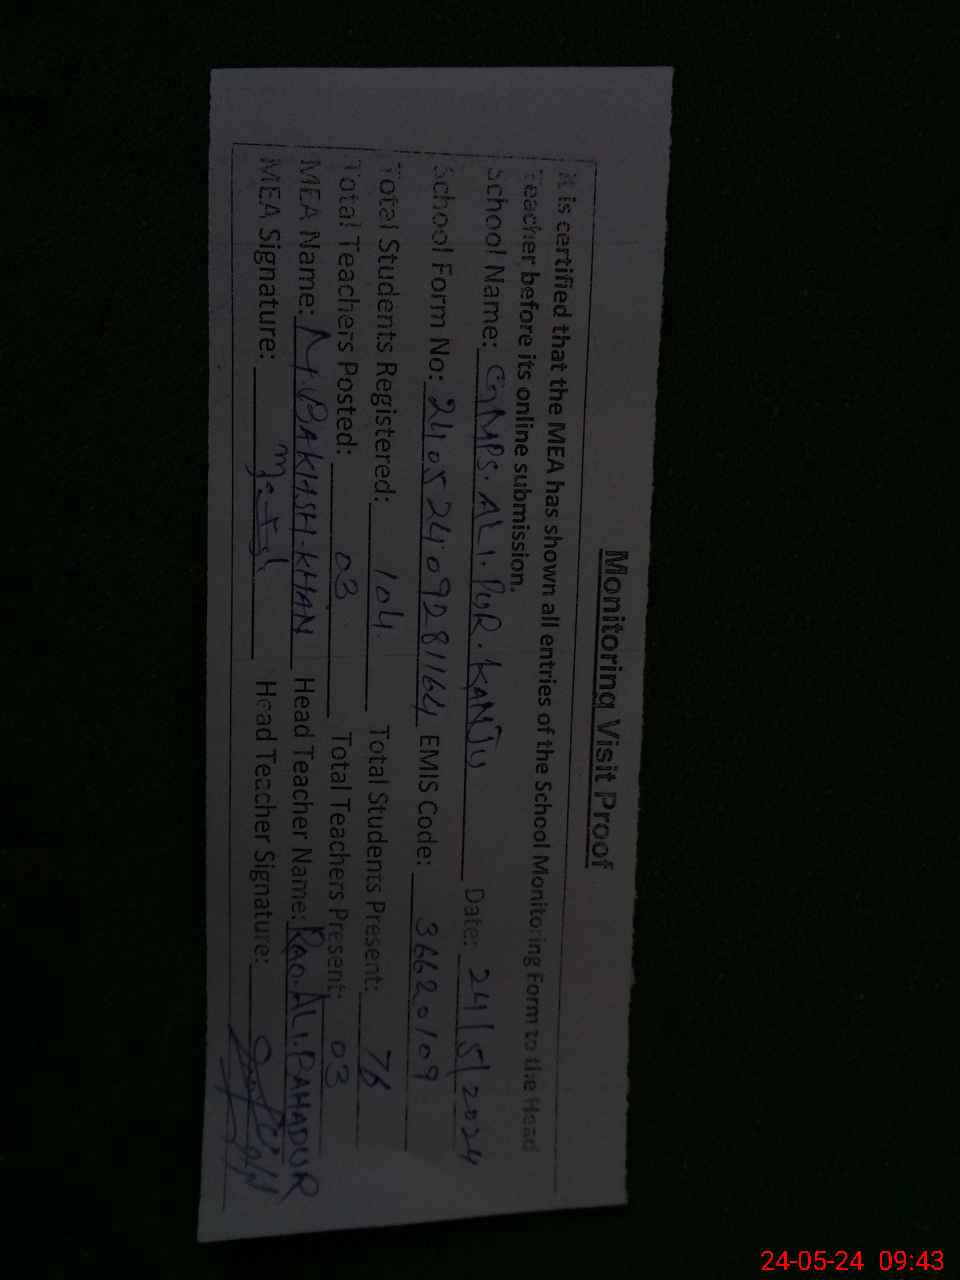 Monitoring Visit Proof
It is certified that the MEA has shown all entries of the School Monitoring Form to the Head
Teacher before its online submission.
School Name: GMPS. ALI. PUR. KANJU Date: 24/5/2024
School Form No: 24052409281164 EMIS Code: 36620109
Total Students Registered: 104 Total Students Present: 76
Total Teachers Posted: 03 Total Teachers Present: 03
MEA Name: M. BAKHSH. KHAN Head Teacher Name: RAO. ALI. BAHADUR
MEA Signature: Head Teacher Signature:
24-05-24 09:43